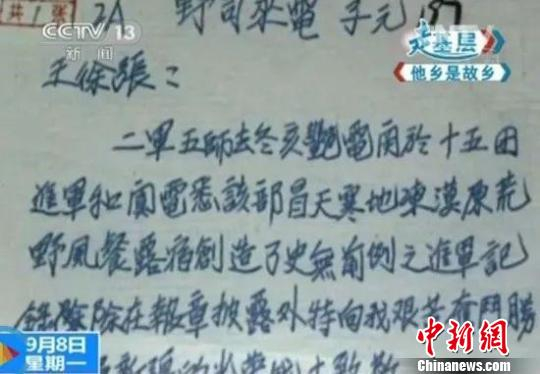 CCTV 13
新闻
共 1 张
野司來電 子元
走基层
他乡是故乡
王徐張：
二軍五師去冬亥艷電関於十五团
進軍和闐電悉該部冒天寒地凍漠原荒
野風餐露宿創造了史無前例之進軍記
錄除除在報章披露外特向我艰苦奮鬥勝
9月8日
星期一
中新网
www.chinanews.com